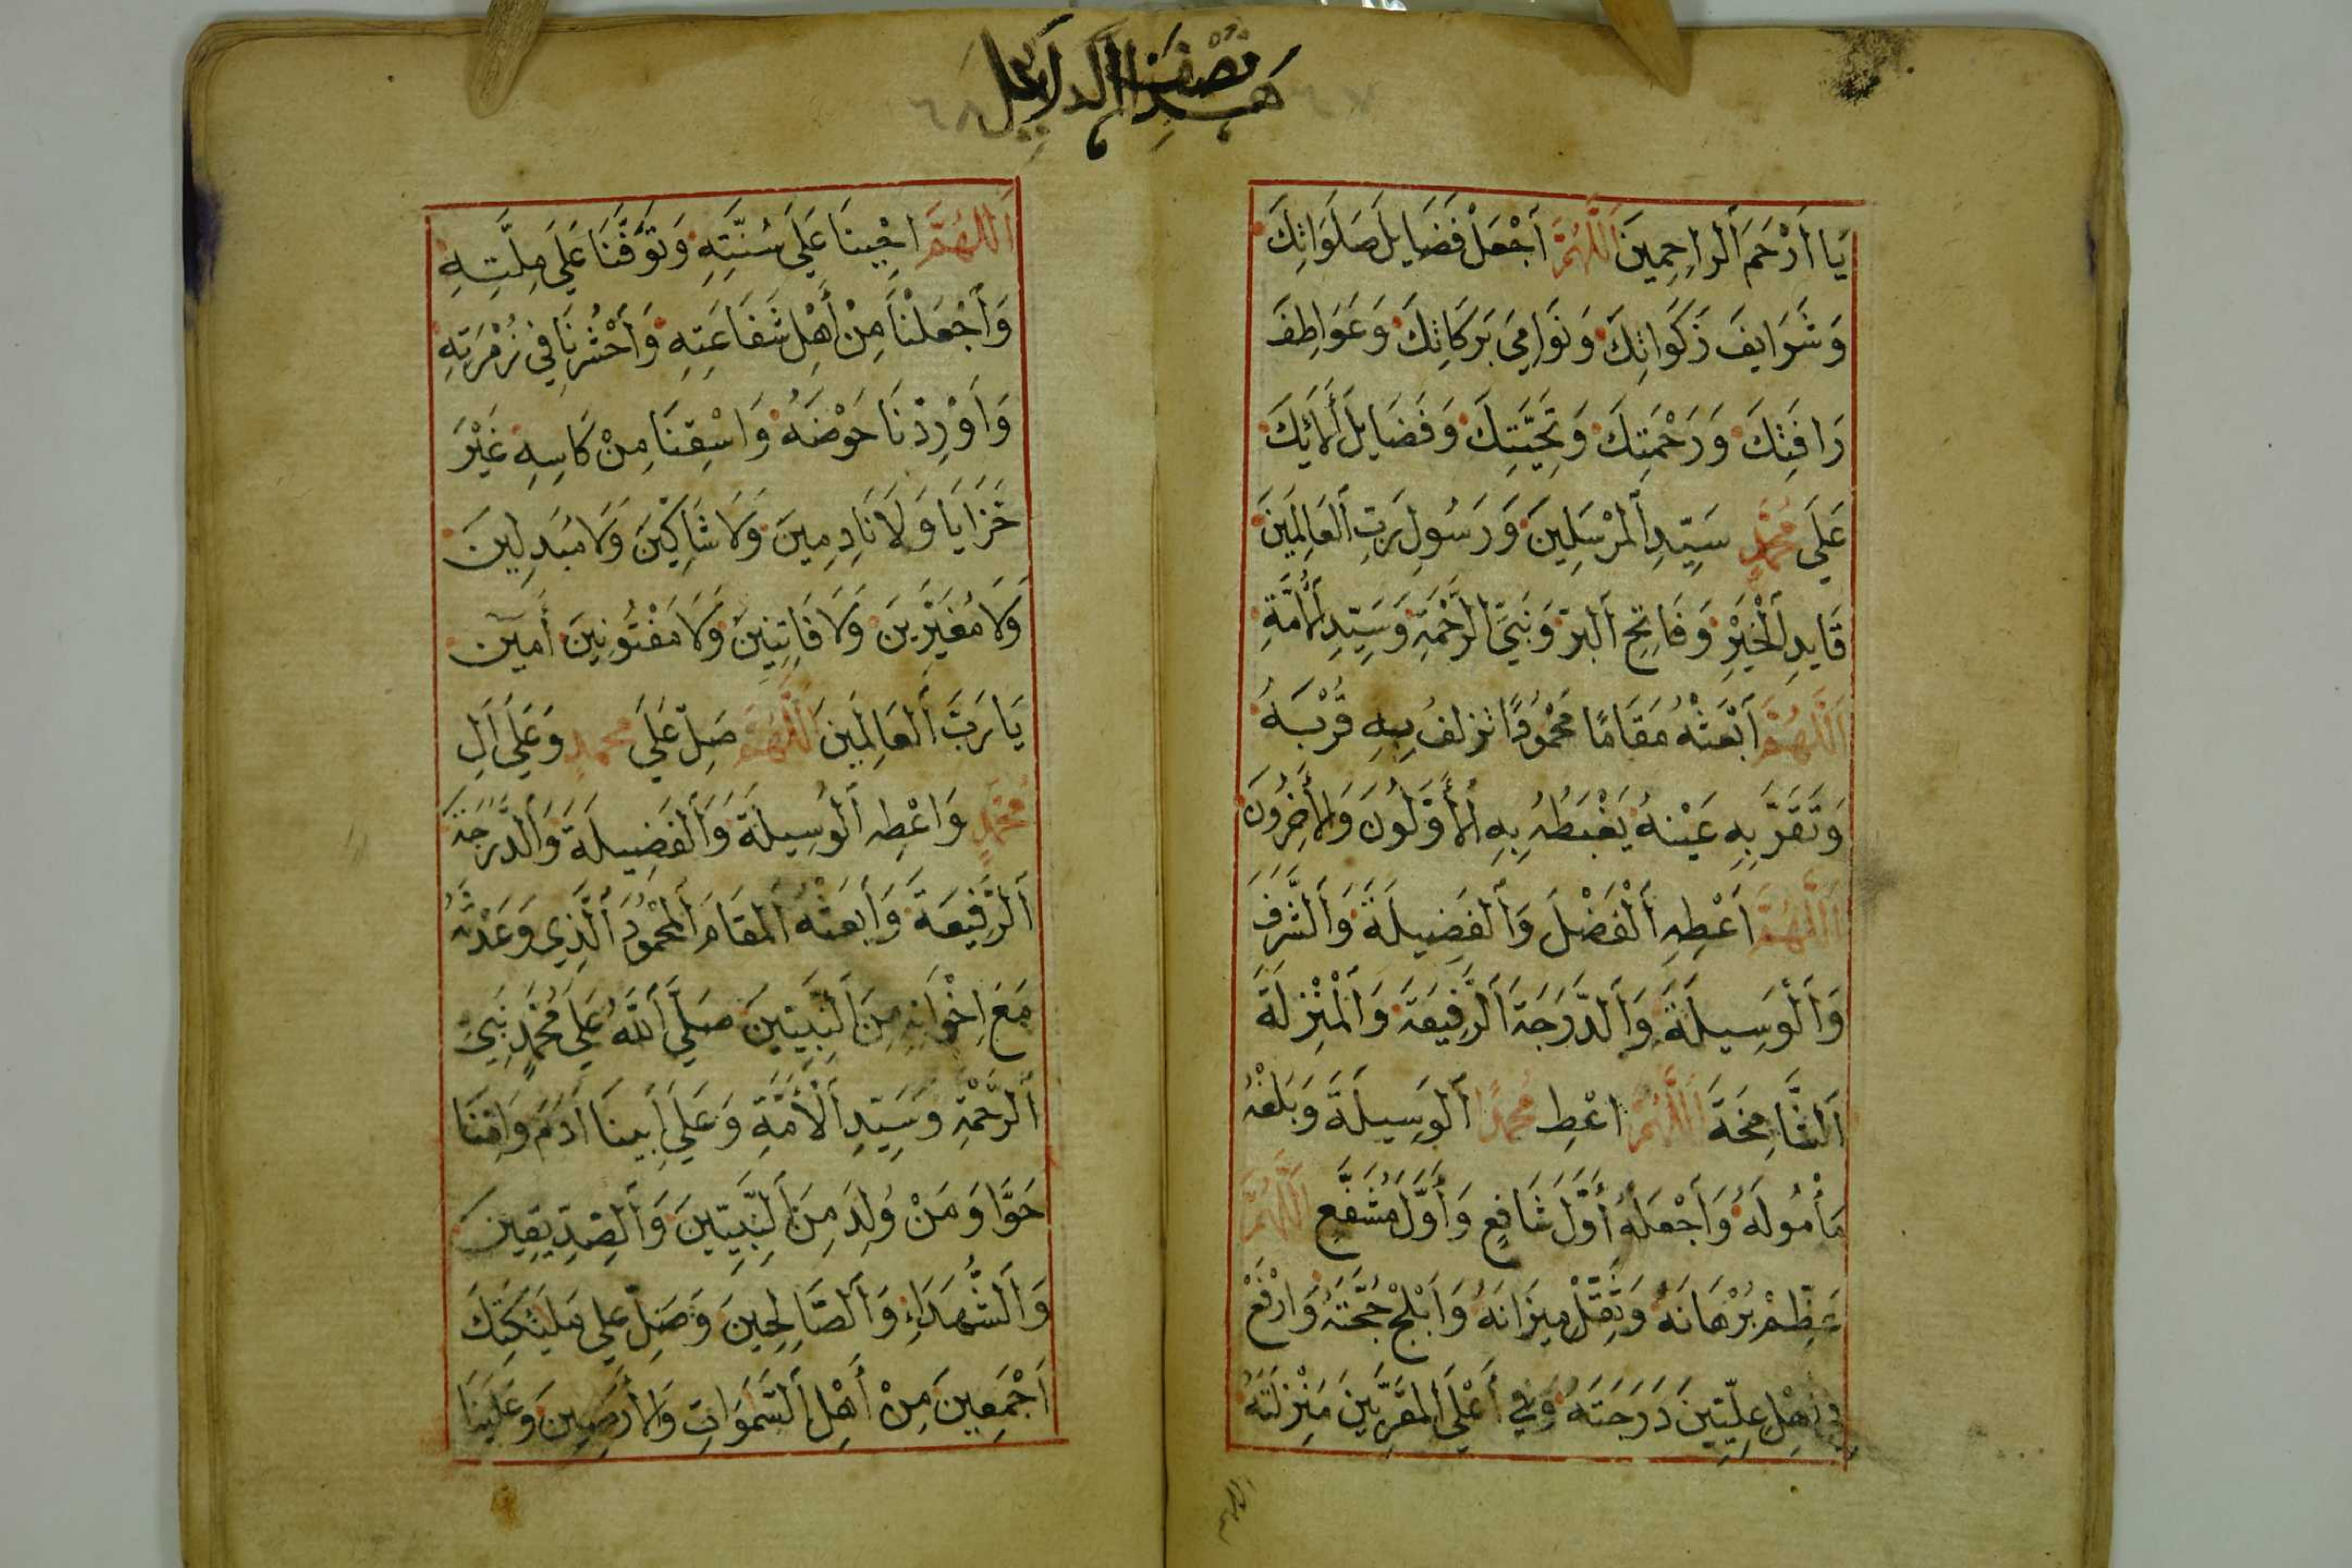 هذا نصف الدلايل
٦٧
يَا اَرْحَمَ اَلراحِمِينَ اَللَّهُمَّ اَجْعَلْ فَضَايِلَ صَلَوَاتِكَ
وَشَرَايِفَ زَكَوَاتِكَ وَنَوَامِيَ بَرَكَاتِكَ وَعَوَاطِفَ
رَافَتِكَ وَرَحْمَتِكَ وَتَحِيَّتِكَ وَفَضَايِلَ اَلَائِكَ
عَلَي مُحَمَّدٍ سَيِّدِ اَلْمُرْسَلِينَ وَرَسُولِ رَبِّ اَلعَالَمِينَ
قَايِدِ اَلْخَيْرِ وَفَاتِحِ اَلبرِّ وَنَبِيِّ الرَّحْمَةِ وَسَيِّدِ اَلْاُمَّةِ
اَللَّهُمَّ اَبْعَثْهُ مَقَامًا مَحْمُودًا تزلفُ بِهِ قُرْبَهُ
وَتَقَرَّ بِهِ عَيْنهُ يَغْبَطُهُ بِهِ اَلْأَوَّلُونَ وَالْأَخِرُونَ
اَللَّهُمَّ اَعْطِهِ اَلْفَضْلَ وَاَلفَضِيلَةَ وَاَلشَّرَفَ
وَاَلْوَسِيلَةَ وَاَلدَّرَجَةَ اَلرَّفِيعَةَ وَاَلْمَنْزِلَةَ
اَلشَّامِخَةَ اَللَّهُمَّ اعْطِ مُحَمَّدًا اَلوَسِيلَةَ وَبَلِّغْهُ
مَأْمُولَهُ وَاَجْعَلهُ أَوَّلَ شَافِعٍ وَأَوَّلَ مُشَفَّعٍ اَللَّهُمَّ
عَظِّمْ بُرْهَانَهُ وَثَقِّلْ مِيزَانَهُ وَاَبْلِجْ حُجَّتَهُ وَارْفَعْ
فِي اَهْلِ عِلِّيِّينَ دَرَجَتَهُ وَفِي أَعْلَي اَلمقَرَّبِينَ مَنْزِلَتَهُ
اللهم
٦٨
اَللَّهُمَّ احْيِينَا عَلَي سُنَّتِهِ وَتَوَفَّنَا عَلَي مِلَّتِهِ
وَاَجْعَلْنَا مِنْ أَهْلِ شَفَاعَتِهِ وَاَحْشُرنَا فِي زُمْرَتِهِ
وَاَوْرِدْنَا حَوْضَهُ وَاسْقِنَا مِنْ كَاسِهِ غَيْرَ
خَزَايَا وَلَا نَادِمِينَ وَلَا شَاكِّينَ وَلَا مُبَدِلِينَ
وَلَا مُغَيِّرِينَ وَلَا فَاتِنِينَ وَلَا مَفْتُونِينَ أَمِينَ
يَا رَبَّ اَلعَالَمِينَ اَللَّهُمَّ صَلِّ عَلَي مُحمدٍ وَعَلَي اَلِ
مُحَمَّدٍ وَاعْطِهِ اَلْوَسِيلَةَ وَاَلْفَضِيلَةَ وَاَلدَّرَجَةَ
اَلرَّفِيعَةَ وَاَبعَثْهُ اَلمقَامَ اَلْمَحْمُودَ اَلَّذِي وَعَدْتَّهُ
مَعَ اِخْوَانِهِ مِنَ اَلنَّبِيِّينَ صَلَّي اَللَّهُ عَلَي مُحَمَّدٍ نَبِيِّ
اَلرَّحْمَةِ وَسَيِّدِ اَلْأُمَّةِ وَعَلَي اَبِينَا اَدَمَ وَاُمِّنَا
حَوَّا وَمَنْ وُلِدَ مِنَ اَلنَّبِيِّينَ وَاَلصِّدِّيقِينَ
وَاَلشُّهَدَاءِ وَاَلصَّالِحِينَ وَصَلِّ عَلَي مَلَئِكَتِكَ
اَجْمَعِينَ مِنْ أَهْلِ اَلسَّمَوَاتِ وَالْأَرَضِينَ وَعَلَيْنَا